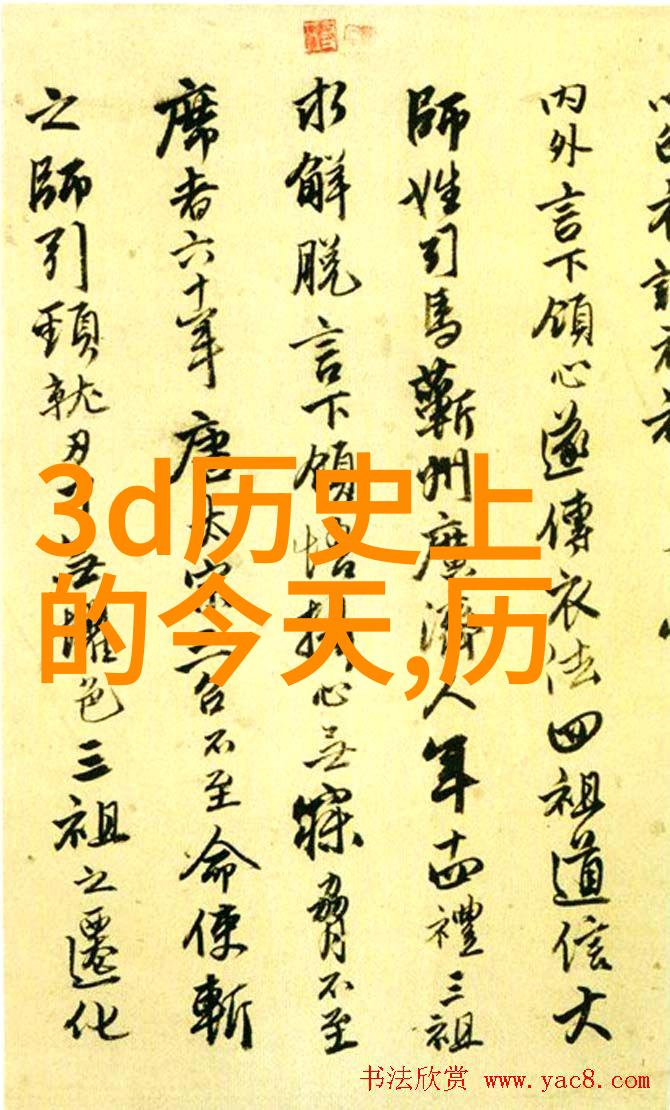 内外言下領心遂傳衣法四祖道信大
師姓司馬蘄州廣濟人年十四禮三祖
求解脱言下領悟攝心無寐脅不至
席者六十年唐太宗三召不至命使斬
之師引頸就刃了無懼色三祖之遷化
3d历史上
的今天,历
书法欣赏 www.yac8.com